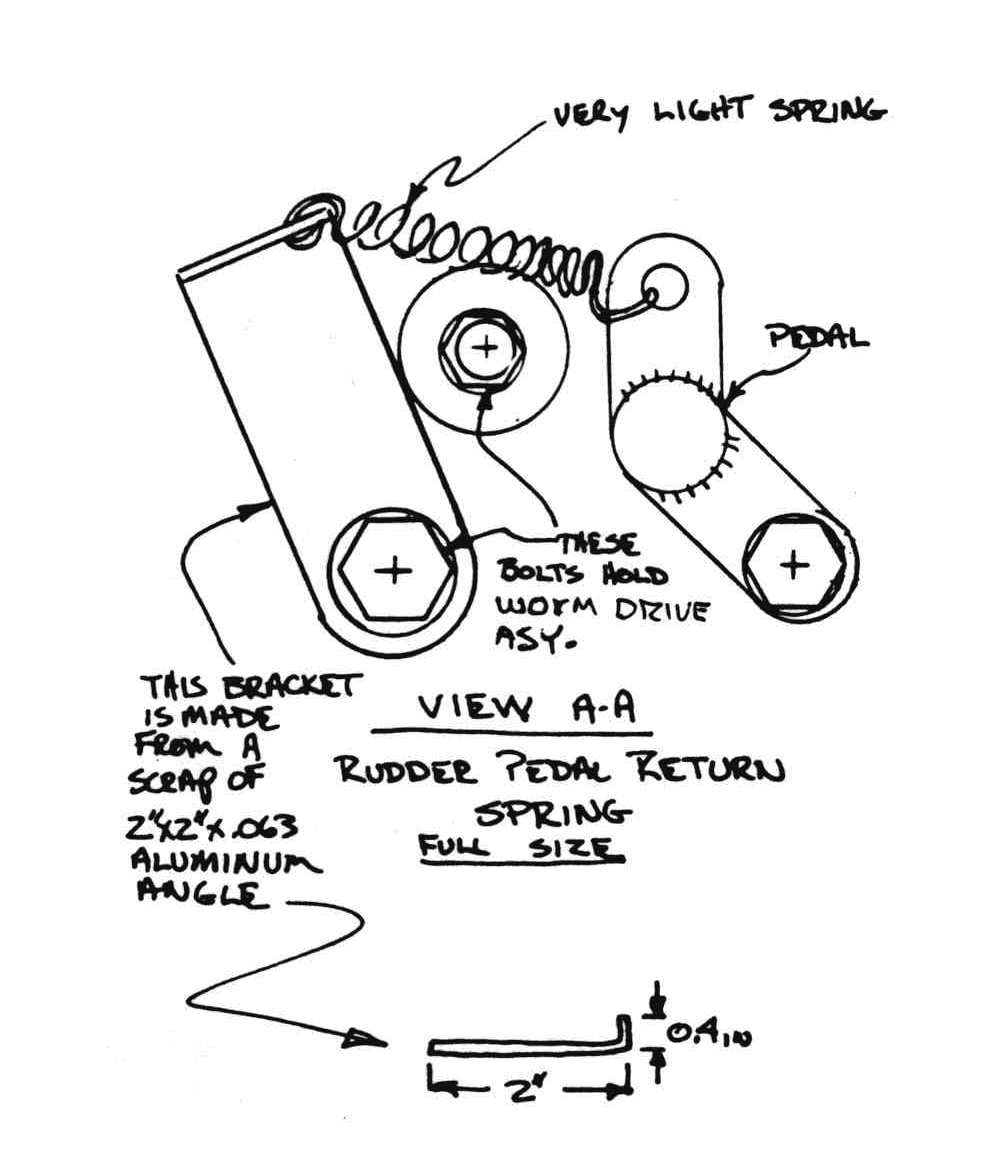 VERY LIGHT SPRING
PEDAL
THESE
BOLTS HOLD
WORM DRIVE
ASY.
THIS BRACKET
IS MADE
FROM A
SCRAP OF
2"X2"X.063
ALUMINUM
ANGLE
VIEW A-A
RUDDER PEDAL RETURN
SPRING
FULL SIZE
0.4 IN
2"